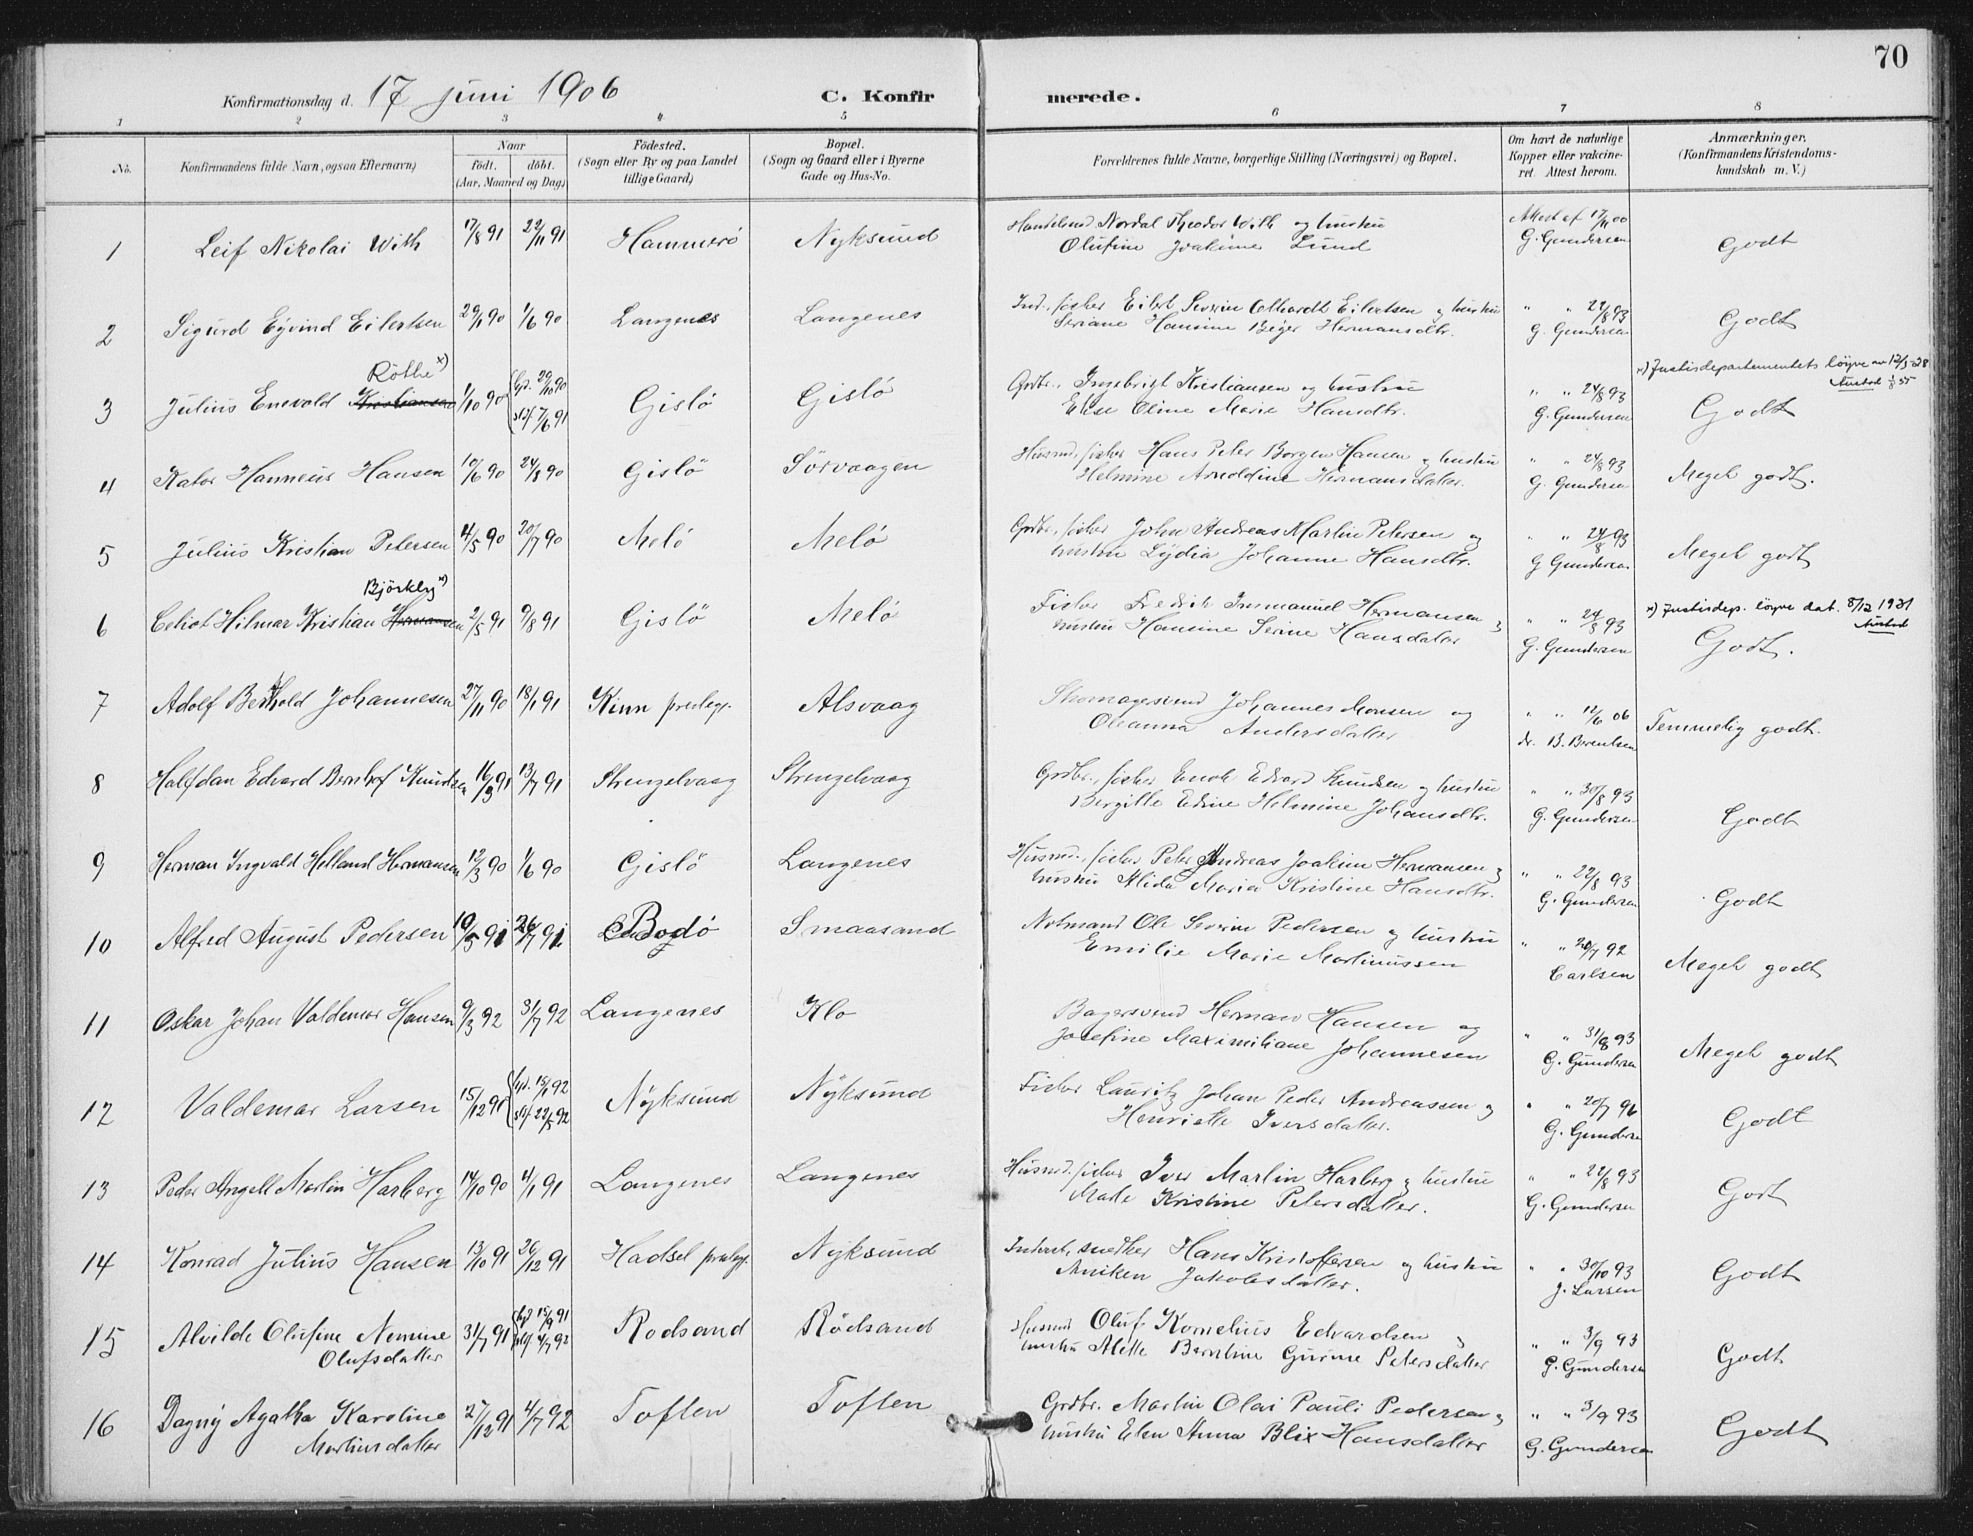 70
Konfirmationsdag d. 17 juni 1906 C. Konfirmerede.
1 2 3 4 5 6 7 8
No. Konfirmandens fulde Navn, ogsaa Efternavn) Naar født. døbt. (Aar, Maaned og Dag) Födested. (Sogn eller By og paa Landet tillige Gaard) Bopæl. (Sogn og Gaard eller i Byerne Gade og Hus-No. Forældrenes fulde Navne, borgerlige Stilling (Næringsvei) og Bopæl. Om havt de naturlige Kopper eller vakcineret. Attest herom. Anmærkninger. (Konfirmandens Kristendomskundskab m. V.)
1 Leif Nikolai With 17/8 91 22/11 91 Hammerö Nyksund Nordal Theodor With og hustru Attest af 17/11 00 Godt
Olufine Joakime Lund G. Gundersen
2 Sigurd Eyvind Eilertsen 29/1 90 1/6 90 Langenes Langenes Ind., fisker Eilert Severin Edhardt Eilertsen og hustru " " 22/8 93 Godt
Seriane Hansine Beyer Hermansdtr. G. Gundersen
Röthe x) x) Justisdepartementets löyve av 12/1-28
Austad
3 Julius Enevold Kristiansen 1/10 90 hjd. 20/10 90 Gislö Gislö Grdbr., Ingebrigt Kristiansen og hustru " " 24/8 93 Godt
stf 7/6 91 Else Oline Marie Hansdtr. G. Gundersen
4 Kator Hanneus Hansen 10/6 90 24/8 90 Gislö Sörvaagen Husmd, fisker Hans Peter Borgen Hansen og hustru " " 24/8 93 Meget godt.
Helmine Arnoldine Hermansdatter. G. Gundersen
5 Julius Kristian Petersen 4/5 90 20/7 90 Melö Melö Grdbr., fisker John Andreas Martin Petersen og " " 24/8 93 Meget godt
hustru Lydia Johanne Hansdtr. G Gundersen
Björkly x) x) Justisdep. löyve dat. 8/12 1931
Austad
6 Celiot Hilmar Kristian Hermansen 2/5 91 9/8 91 Gislö Melö Fisker Fredrik Immanuel Hermansen og " " 24/8 93 Godt.
hustru Hansine Serine Hansdatter G. Gundersen
7 Adolf Berthold Johannesen 27/11 90 18/1 91 Kinn prestegj. Alsvaag Skomagersvend Johannes Monsen og " " 12/6 06 Temmelig godt.
Oleanna Andersdatter dr. B. Berentsen
8 Halfdan Edvard Bernhof Knudsen 16/3 91 13/7 91 Strengelvaag Strengelvaag Grdbr., fisker Enok Edvard Knudsen og hustru " " 30/8 93 Godt
Bergitte Edine Helmine Johansdtr. G. Gundersen
9 Herman Ingvald Helland Hermansen 12/3 90 1/6 90 Gislö Langenes Husmd., fisker Peter Andreas Joakim Hermansen og " " 22/8 93 Godt
hustru Alida Maria Kristine Hansdtr. G. Gundersen
10 Alfred August Pedersen 10/5 91 26/7 91 Bodö Smaasand Notmand Ole Severin Pedersen og hustru " " 20/7 92 Meget godt
Emilie Marie Martinussen Carlsen
11 Oskar Johan Valdemar Hansen 9/3 92 31/7 92 Langenes Klo Bagersvend Herman Hansen og " " 31/8 93 Meget godt
Josefine Maximiliane Johannesen G. Gundersen
12 Valdemar Larsen 15/12 91 hjd. 15/1 92 Nyksund Nyksund Fisker Lauritz Johan Peder Andreassen og " " 20/7 96 Godt
stf 22/5 92 Henriette Iversdatter. G. Gundersen
13 Peder Angell Martin Harberg 14/10 90 4/1 91 Langenes Langenes Husmd. fisker Iver Martin Harberg og hustru " " 22/8 93 Godt
Marte Kristine Petersdatter. G. Gundersen
14 Konrad Julius Hansen 13/10 91 26/12 91 Hadsel prestegj. Nyksund Inderst, snedker Hans Kristoffersen og hustru " " 30/10 93 Godt
Anniken Jakobsdatter. J. Larsen
15 Alvilde Olufine Nemine 31/7 91 hjd 15/9 91 Rodsand Rödsand Husmd Oluf Kornelius Edvardsen og " " 3/9 93 Godt
Olufsdatter stf 4/7 92 hustru Alette Berntine Gurine Petersdatter G. Gundersen
16 Dagny Agatha Karoline 27/12 91 4/7 92 Toften Toften Grdbr. Martin Olai Pauli Pedersen og " " 3/9 93 Godt
Martinsdatter hustru Elen Anna Blix Hansdatter G. Gundersen